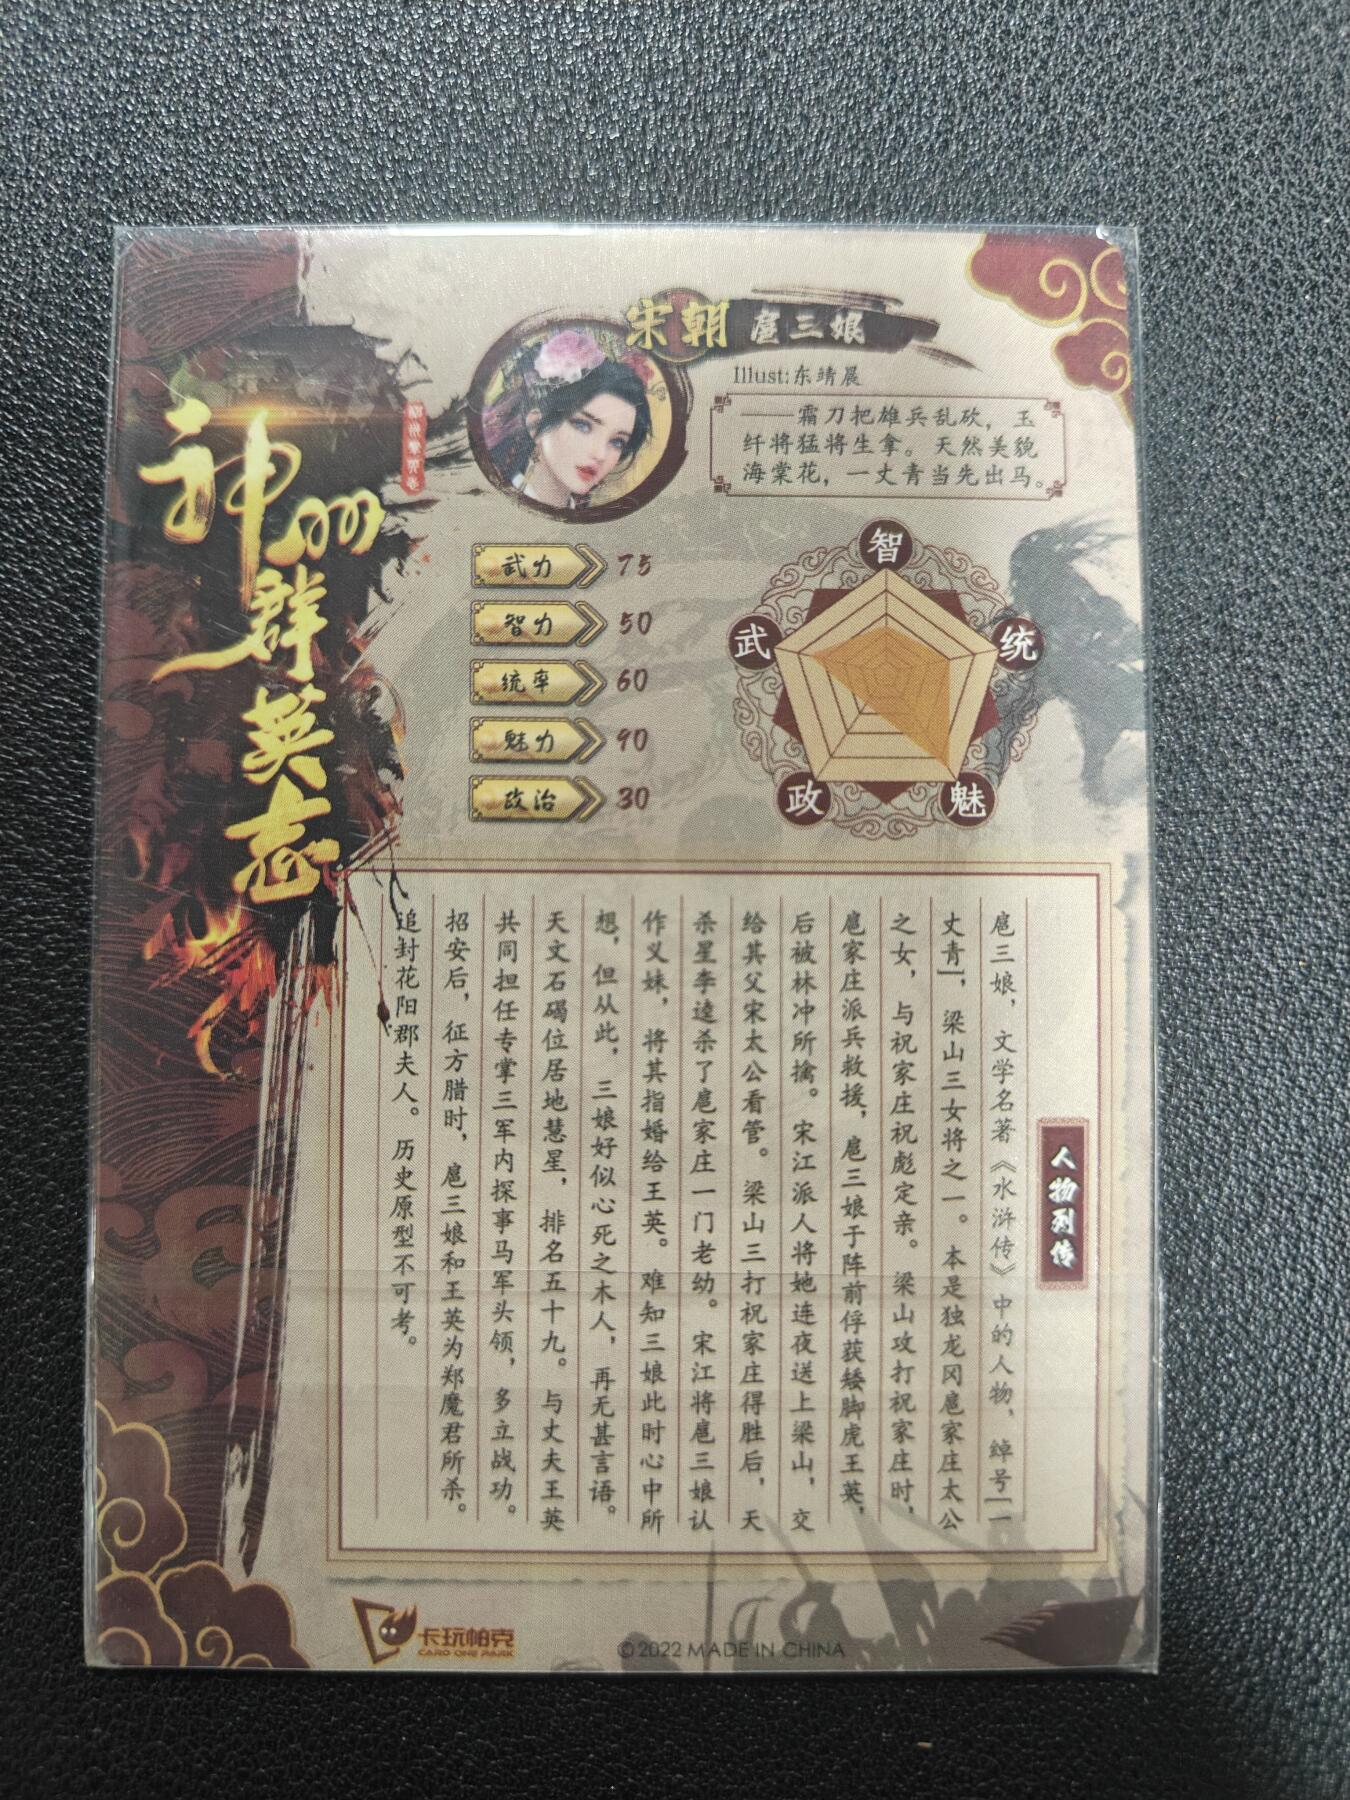 神州
群
英
志
宋朝 扈三娘
Illust:东靖晨
——霜刀把雄兵乱砍，玉
纤将猛将生拿。天然美貌
海棠花，一丈青当先出马。
武力 75
智力 50
统率 60
魅力 90
政治 30
智
武
统
政
魅
人物列传
扈三娘，文学名著《水浒传》中的人物，绰号「一
丈青」，梁山三女将之一。本是独龙冈扈家庄太公
之女，与祝家庄祝彪定亲。梁山攻打祝家庄时，
扈家庄派兵救援，扈三娘于阵前俘获矮脚虎王英，
后被林冲所擒。宋江派人将她连夜送上梁山，交
给其父宋太公看管。梁山三打祝家庄得胜后，天
杀星李逵杀了扈家庄一门老幼。宋江将扈三娘认
作义妹，将其指婚给王英。难知三娘此时心中所
想，但从此，三娘好似心死之木人，再无甚言语。
天文石碣位居地慧星，排名五十九。与丈夫王英
共同担任专掌三军内探事马军头领，多立战功。
招安后，征方腊时，扈三娘和王英为郑魔君所杀。
追封花阳郡夫人。历史原型不可考。
卡玩帕克
CARD ONE PARK
©2022 MADE IN CHINA